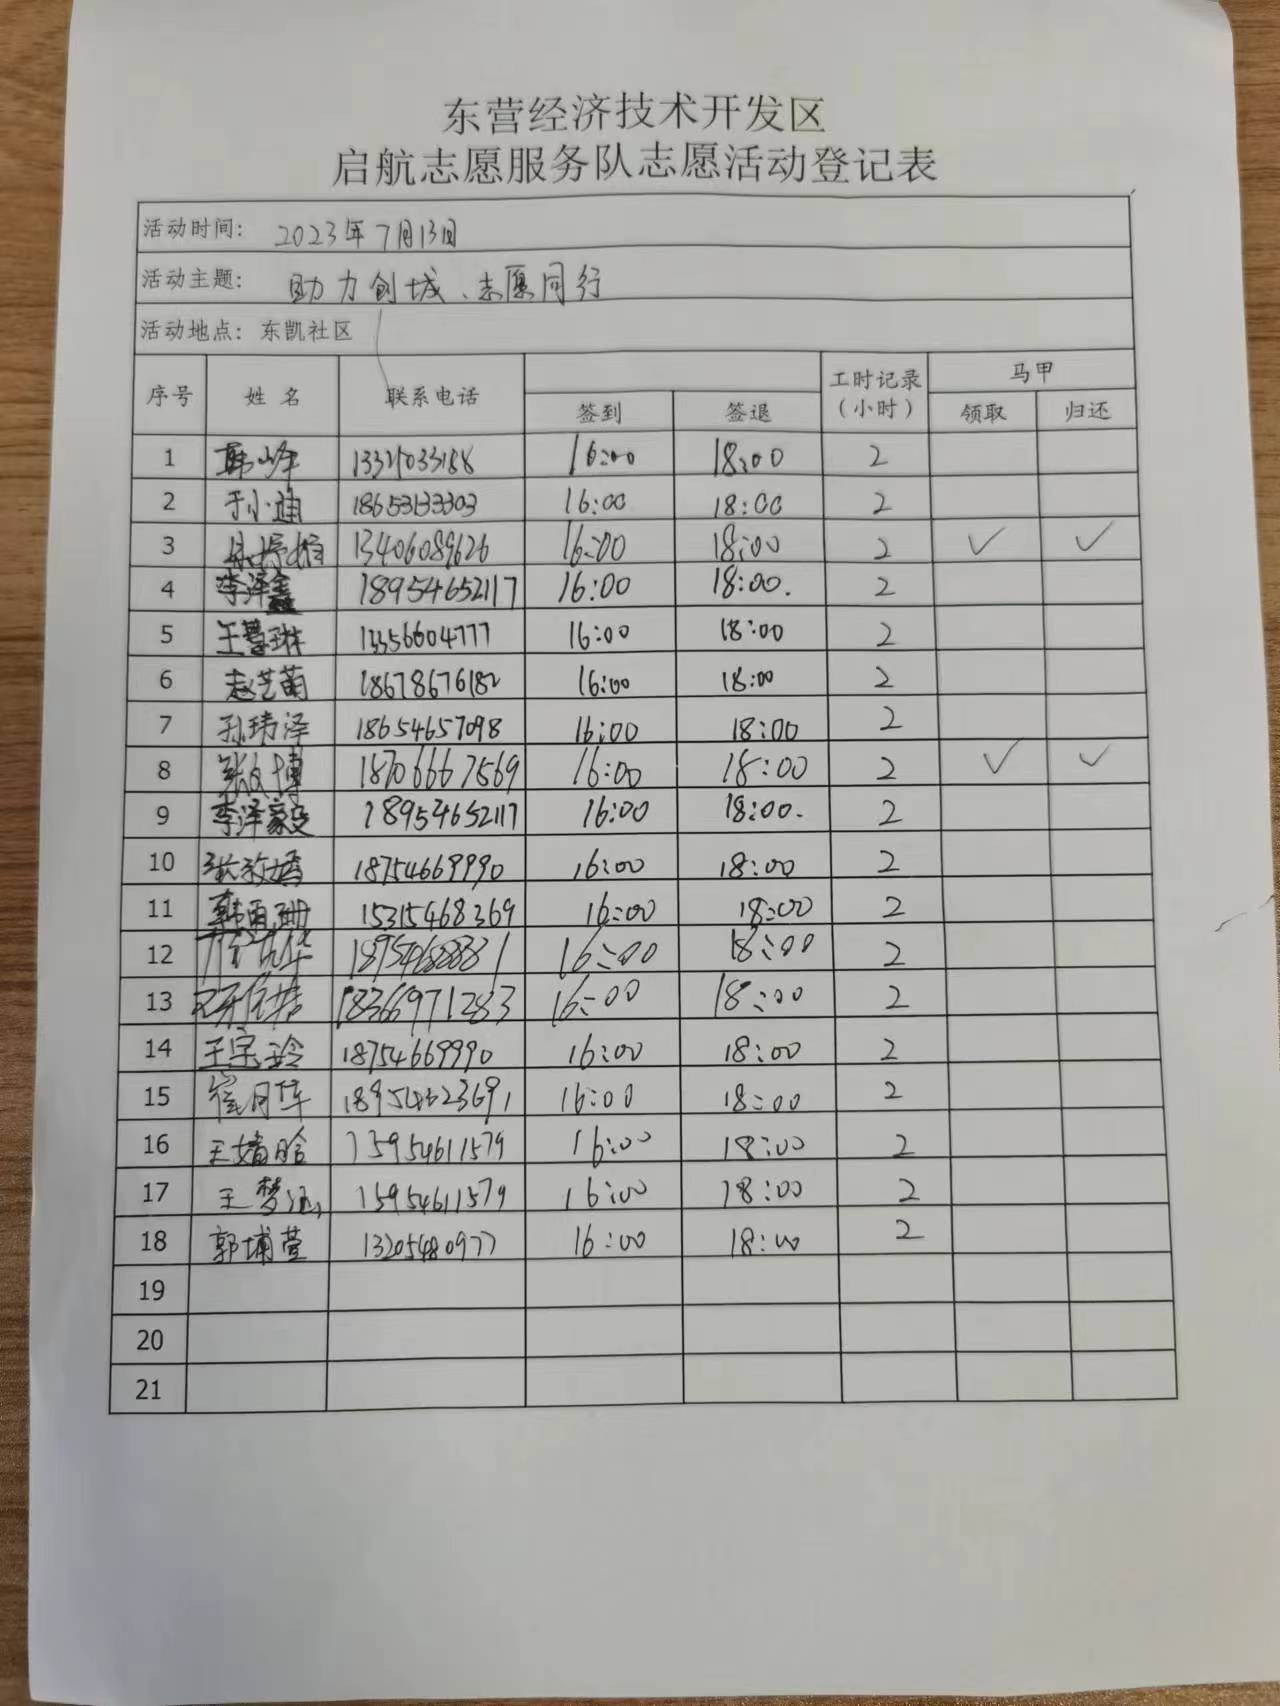 东营经济技术开发区
启航志愿服务队志愿活动登记表
活动时间: 2023年7月13日
活动主题: 助力创城、志愿同行
活动地点: 东凯社区
序号 姓名 联系电话 签到 签退 工时记录(小时) 马甲 领取 归还
1 韩峰 16:00 18:00 2
2 于小迪 18653133303 16:00 18:00 2
3 13406089626 16:00 18:00 2 ✓ ✓
4 李泽鑫 18954652117 16:00 18:00. 2
5 王慧琳 13356604777 16:00 18:00 2
6 赵艺菌 18678676182 16:00 18:00 2
7 孙玮泽 18654657098 16:00 18:00 2
8 张文博 18706667569 16:00 18:00 2 ✓ ✓
9 李泽毅 18954652117 16:00 18:00. 2
10 18754669990 16:00 18:00 2
11 韩雨珊 15315468369 16:00 18:00 2
12 16:00 18:00 2
13 18366971283 16:00 18:00 2
14 王宝玲 18754669990 16:00 18:00 2
15 崔月萍 18954623691 16:00 18:00 2
16 王婧晗 15954611579 16:00 18:00 2
17 王梦涵 15954611579 16:00 18:00 2
18 郭埔萱 13205480977 16:00 18:00 2
19
20
21